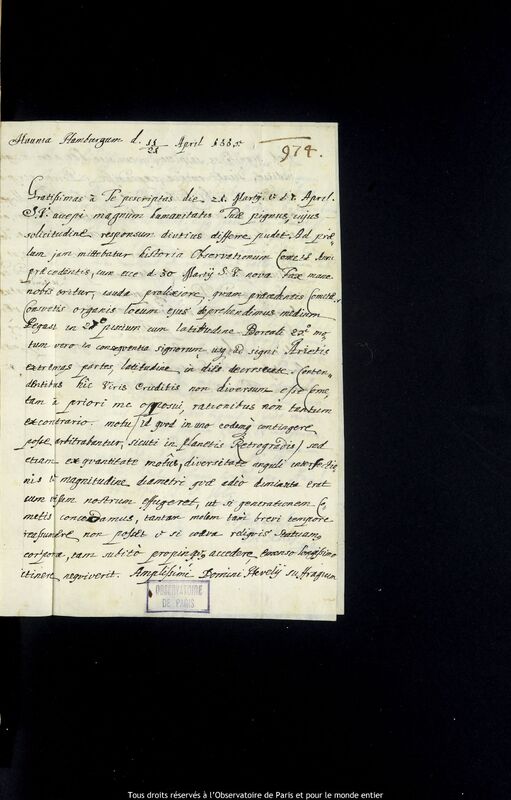 Haunia Hamburgum d. 11/21 April 1665
974.
Gratissimas à Te perscriptas die 21. Martij. & d 8. April.
S.V. accepi magnum humanitatis Tuæ pignus, cujus
solicitudine responsum diutius differre pudet. Ad præ-
lum jam mittebatur historia Observationum Cometæ Anni
præcedentis, cum ecce d. 30 Martij S.V. nova Fax mane
nobis oritur, cauda prolixiore, quam præcedentis Cometæ,
Consuetis organis locum ejus deprehendimus medium
Pegasi in piscium cum latitudine Boreali 20° mo-
tum vero in consequentia signorum usq ad signi Arietis
extremas partes latitudine in dies decrescente. Conten-
dentibus hic Viris Eruditis non diversum esse
tam à priori me opposui, rationibus non tantum
ex contrario motu / id quod in uno eodemq contingere
posse arbitrabantur, sicuti in planetis Retrogradis / sed
etiam ex quantitate motus, diversitate anguli intersectio-
nis & magnitudine diametri quæ adeo diminuta erat
cum visum nostrum effugeret, ut si generationem Co-
metis concedamus, tantam molem tam brevi tempore
non posset & si coæva reliquis statuamus
corpora, tam subito propinquis accedere, emenso longissimo
itinere nequiverit. Amplissimi Domini Hevelij suffragium
OBSERVATOIRE
DE PARIS
Tous droits réservés à l'Observatoire de Paris et pour le monde entier